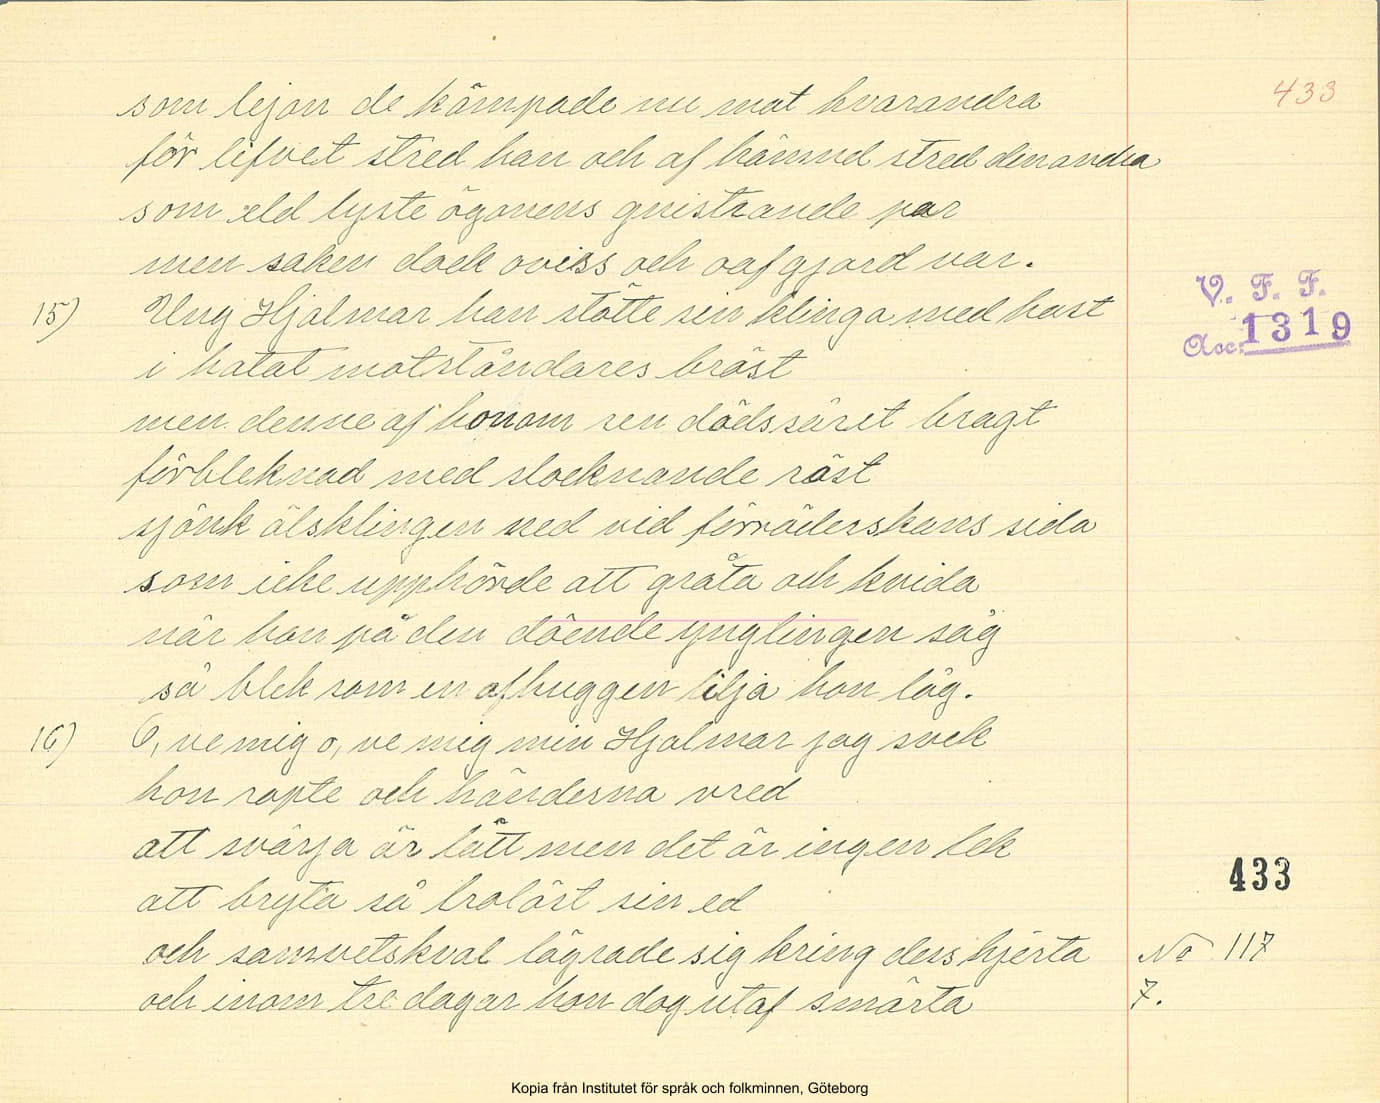 433
som lejon de kämpade nu mot hvarandra
för lifvet stred han och af hämnd stred den andra
som eld lyste ögonens gnistrande par
men saken dock oviss och oafgjord var.
V. F. F.
Acc: 1319
15) Ung Hjalmar han stötte sin klinga med hast
i hatat motståndares bröst
men denne af honom ren dödssåret bragt
förbleknad med slocknande röst
sjönk älsklingen ned vid förräderskans sida
som icke upphörde att gråta och kvida
när hon på den döende ynglingen såg
så blek som en afhuggen lilja hon låg.
16) O, ve mig o, ve mig min Hjalmar jag svek
hon ropte och händerna vred
att svärja är lätt men det är ingen lek
433
att bryta så trolöst sin ed
och samvetskval lägrade sig kring dess hjerta No 117
och inom tre dagar hon dog utaf smärta 7.
Kopia från Institutet för språk och folkminnen, Göteborg